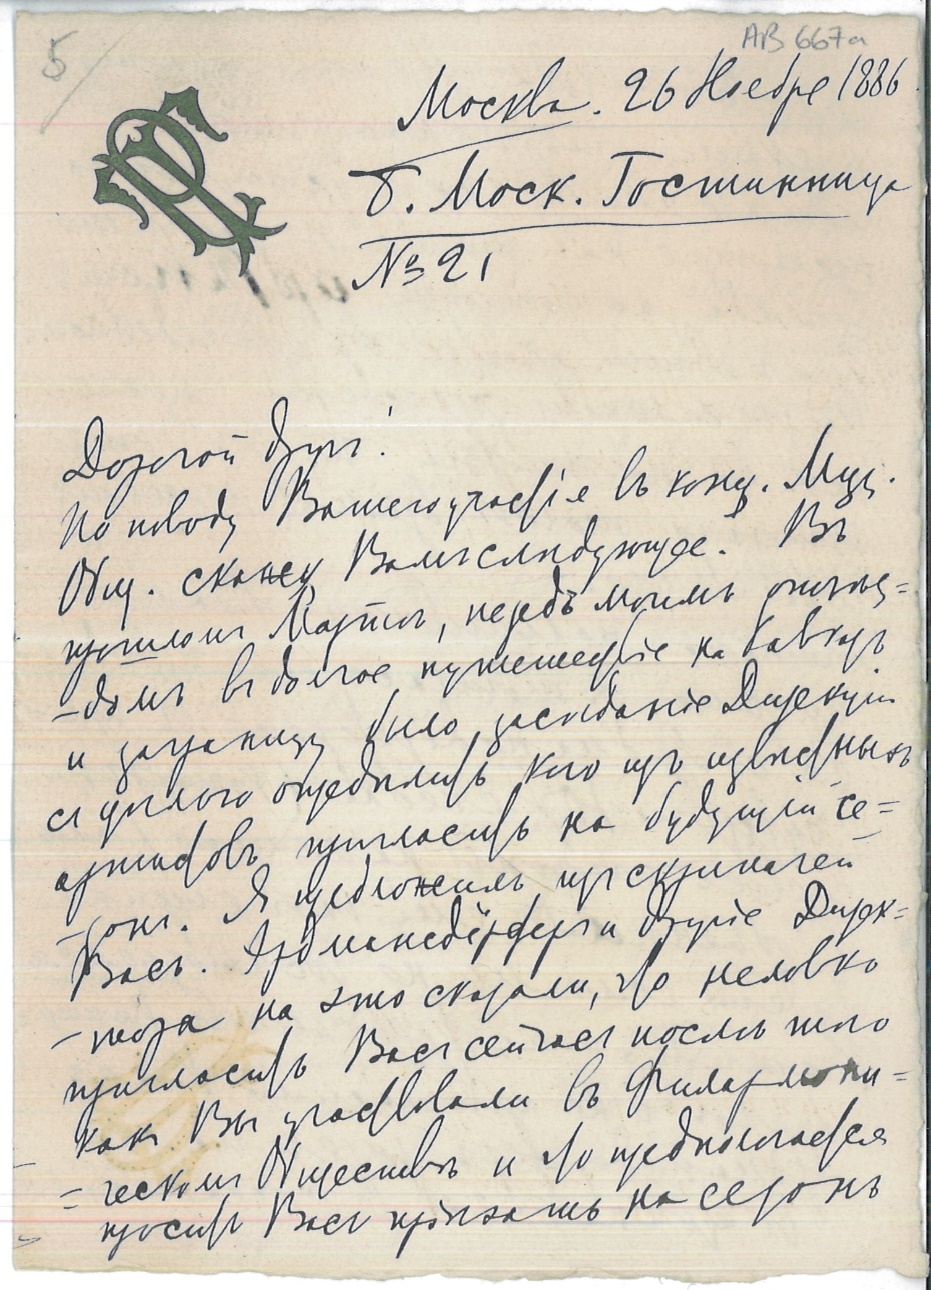 5
AB 667a
Москва. 26 Ноября 1886.
Б. Моск. Гостинница
№ 21
Дорогой друг!
По поводу Вашего участія въ конц. Муз.
Общ. скажу Вамъ слѣдующее. Въ
прошломъ Мартѣ, передъ моимъ отъѣз=
-домъ въ долгое путешествіе на Кавказъ
и заграницу было засѣданіе Дирекціи
съ цѣлью опредѣлить кого изъ извѣстныхъ
артистовъ пригласить на будущій се=
-зонъ. Я предложилъ изъ скрипачей
Васъ. Эрдмансдёрферъ и другіе Дирек=
-тора на это сказали, что неловко
пригласить Васъ сейчасъ послѣ того
какъ Вы участвовали въ Филармони=
=ческомъ Обществѣ и что предполагается
просить Васъ пріѣхать на сезонъ